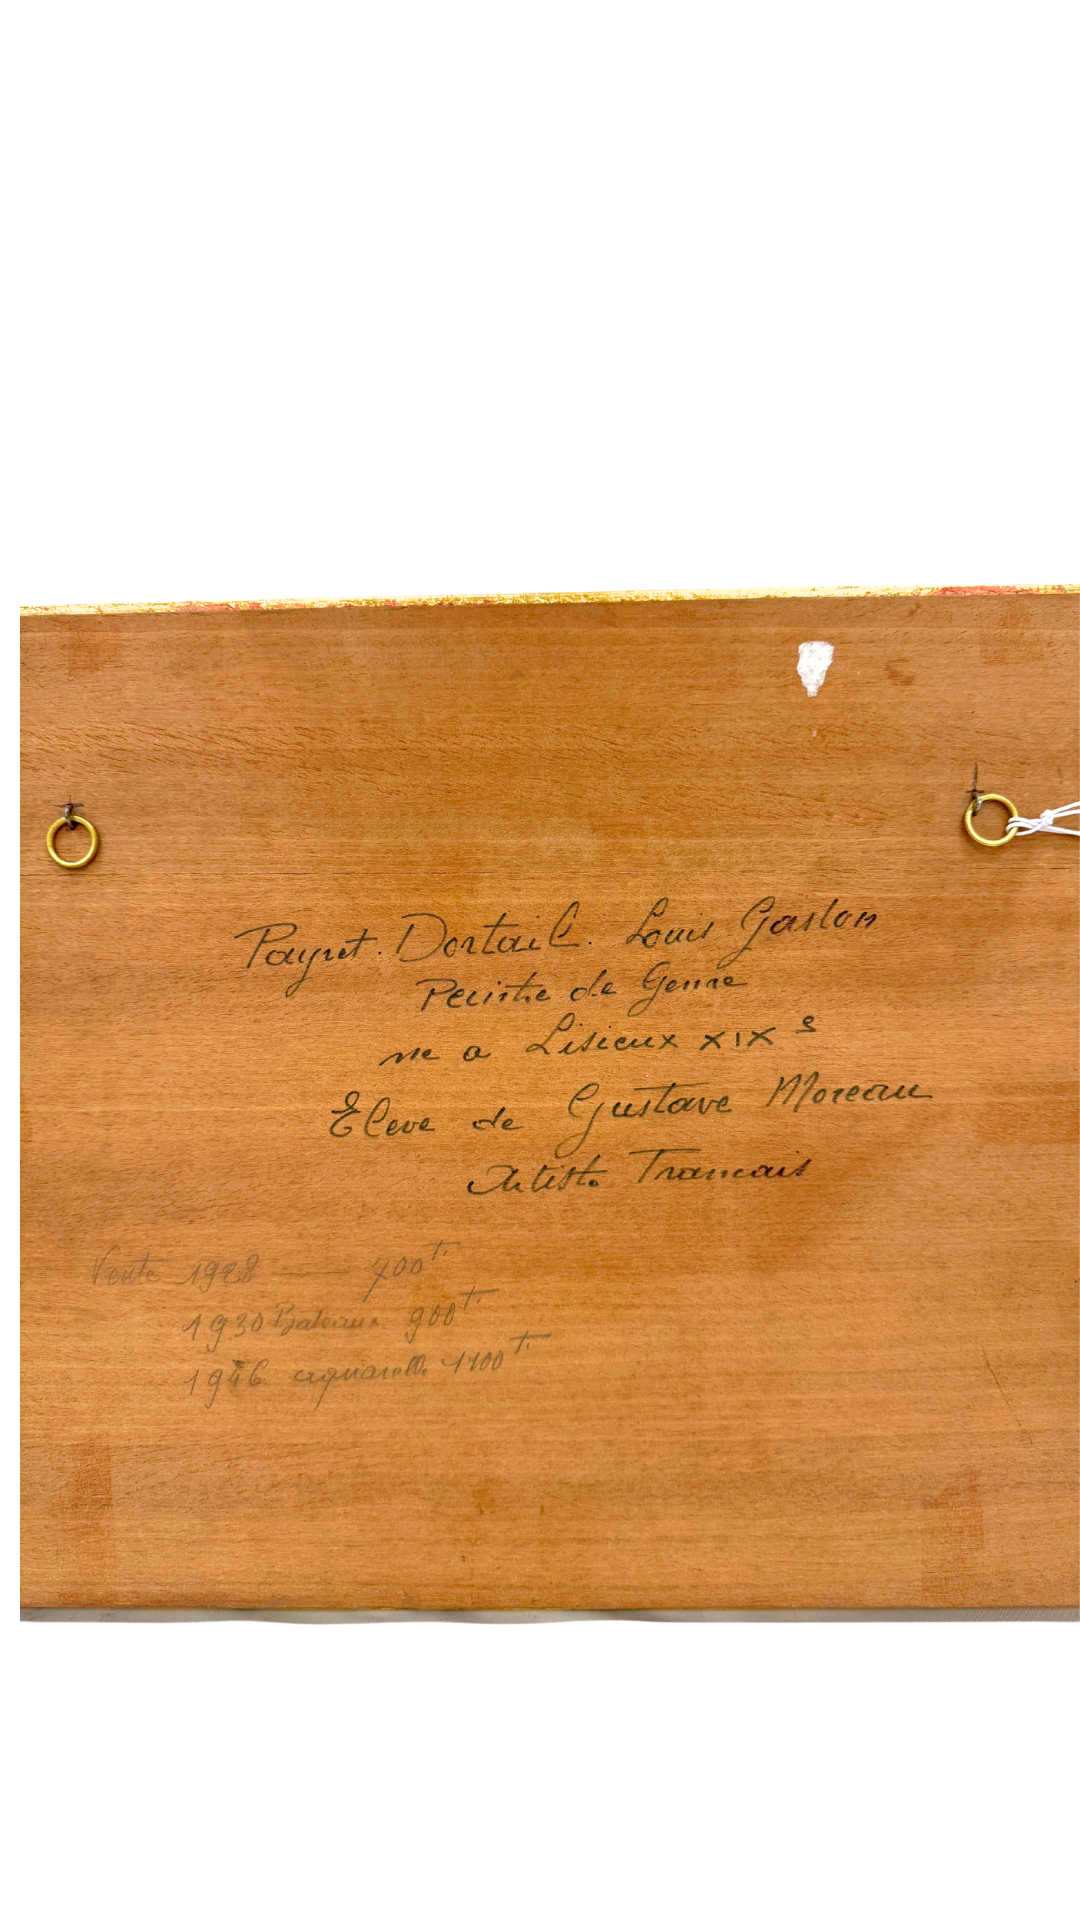 Payret. Dortail. Louis Gaston
Peintre de Genre
ne a Lisieux XIX e
Eleve de Gustave Moreau
Artiste Francais
Vente 1928 — 700 Fr
1930 Bateaux 900 Fr
1946 aquarelle 1100 Fr